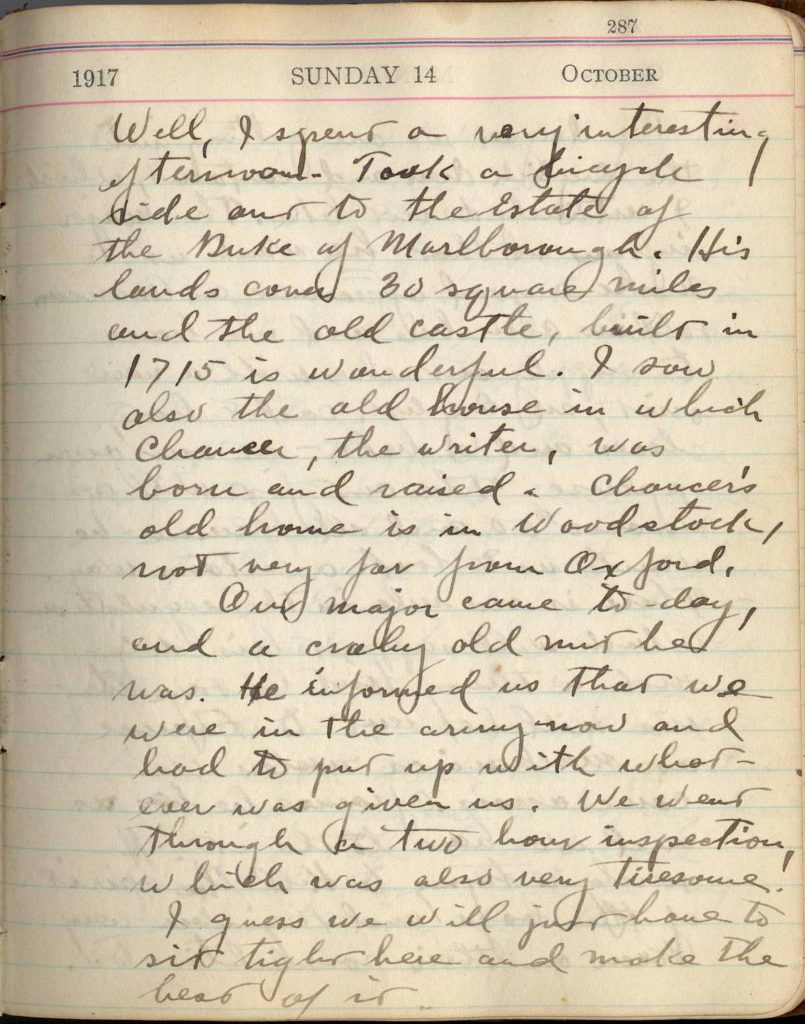 287
1917 SUNDAY 14 OCTOBER
Well, I spent a very interesting
afternoon. Took a bicycle
ride out to the Estate of
the Duke of Marlborough. His
lands cover 30 square miles
and the old castle, built in
1715 is wonderful. I saw
also the old house in which
Chaucer, the writer, was
born and raised. Chaucer's
old home is in Woodstock,
not very far from Oxford.
Our major came to-day,
and a crabby old nut he
was. He informed us that we
were in the army now and
had to put up with what-
ever was given us. We went
through a two hour inspection,
which was also very tiresome.
I guess we will just have to
sit tight here and make the
best of it.